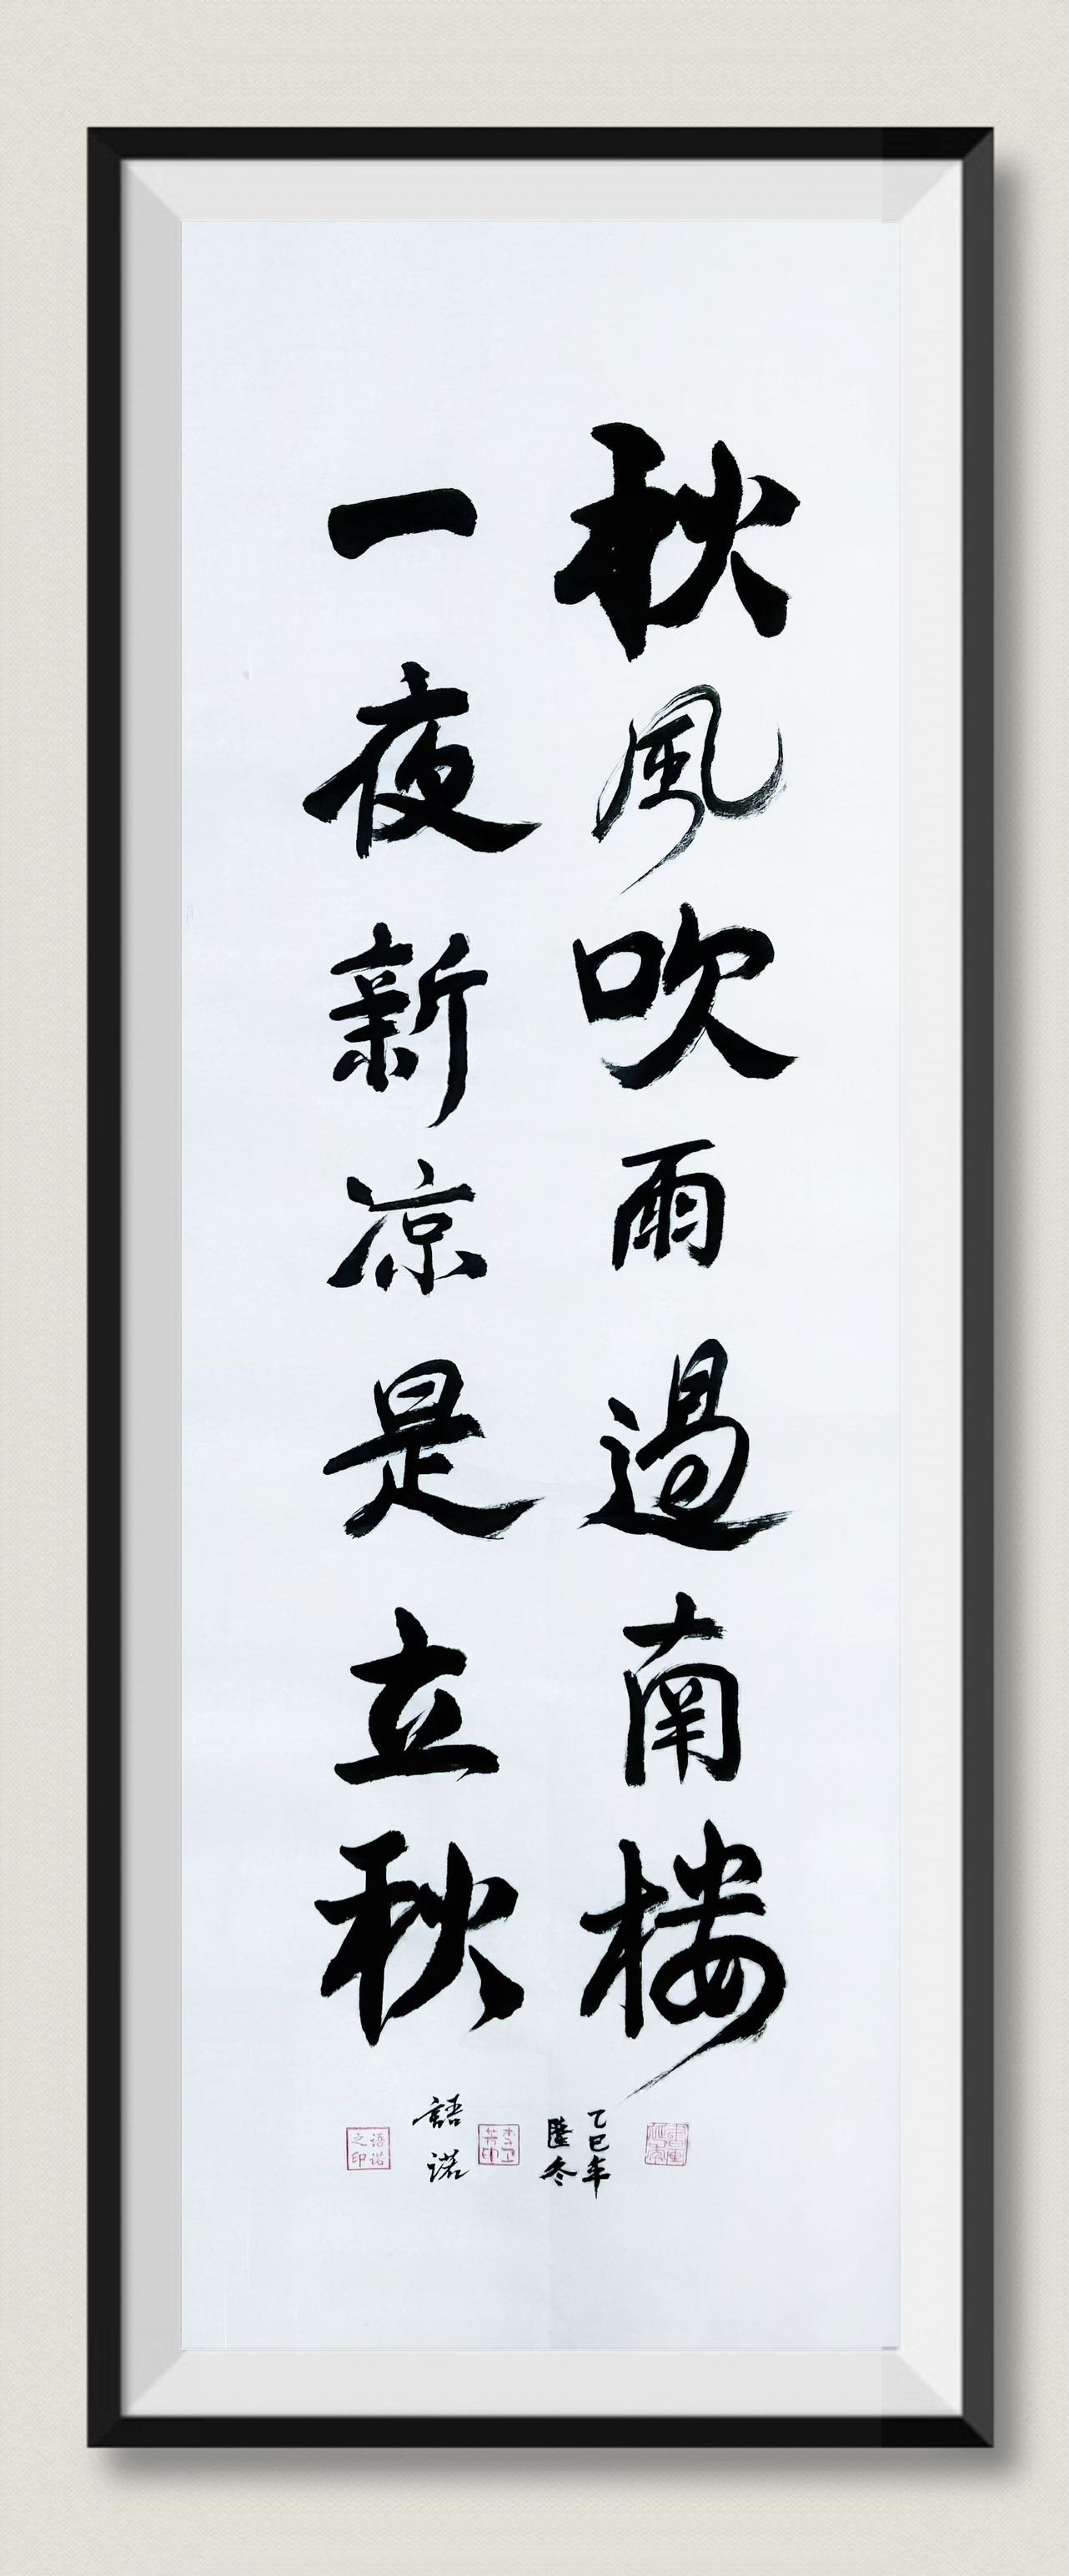 秋風吹雨過南楼
一夜新凉是立秋
乙巳年
隆冬
語諾
语诺之印